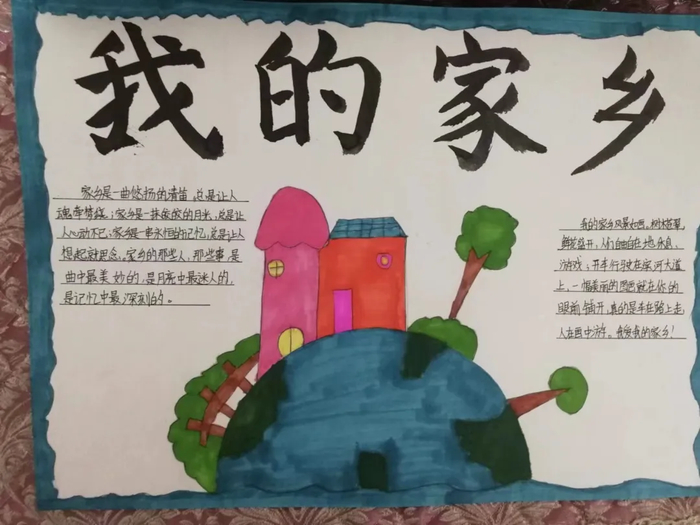 我的家乡
家乡是一曲悠扬的清笛,总是让人
魂牵梦绕;家乡是一抹皎皎的月光,总是让
人心动不已;家乡是一串永恒的记忆,总是让人
想起就思念。家乡的那些人,那些事,是
曲中最美妙的,是月亮中最迷人的,
是记忆中最深刻的。
我的家乡风景如画,树木
鲜花盛开,人们自由自在地休息、
游戏,开车行驶在滨河大道
上,一幅美丽的图画就在你的
眼前铺开,真的是车在路上走,
人在画中游。我爱我的家乡!